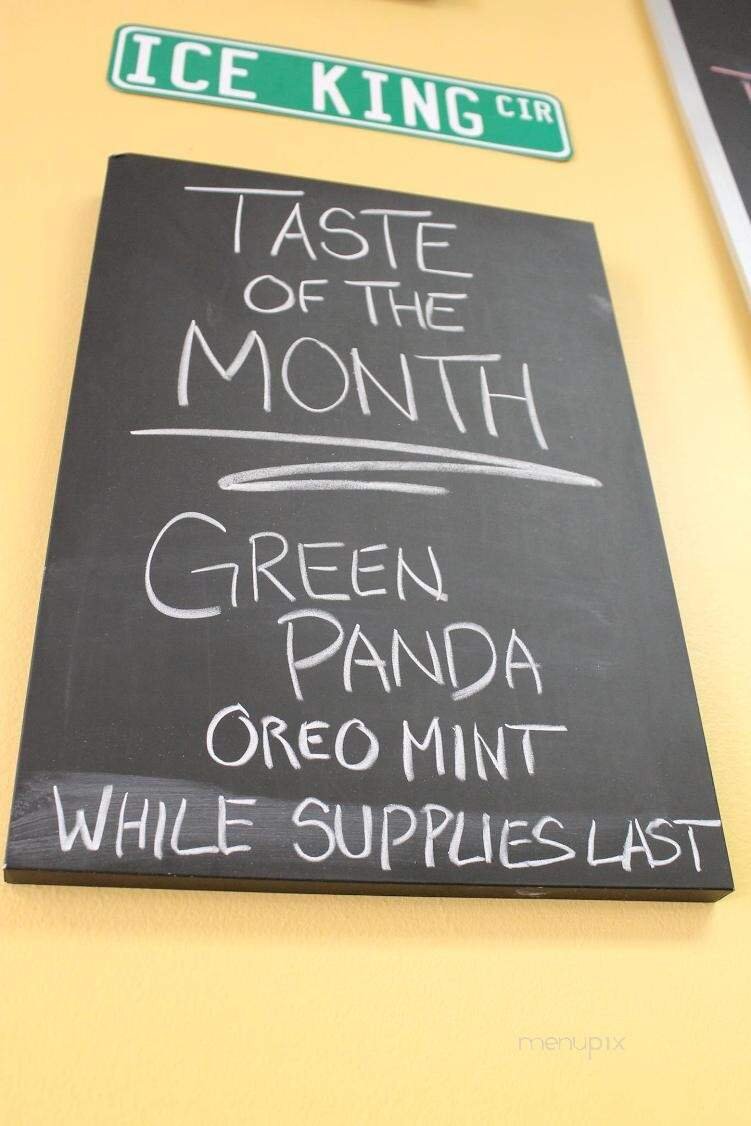 ICE KING CIR
TASTE
OF THE
MONTH
GREEN
PANDA
OREO MINT
WHILE SUPPLIES LAST
menupix